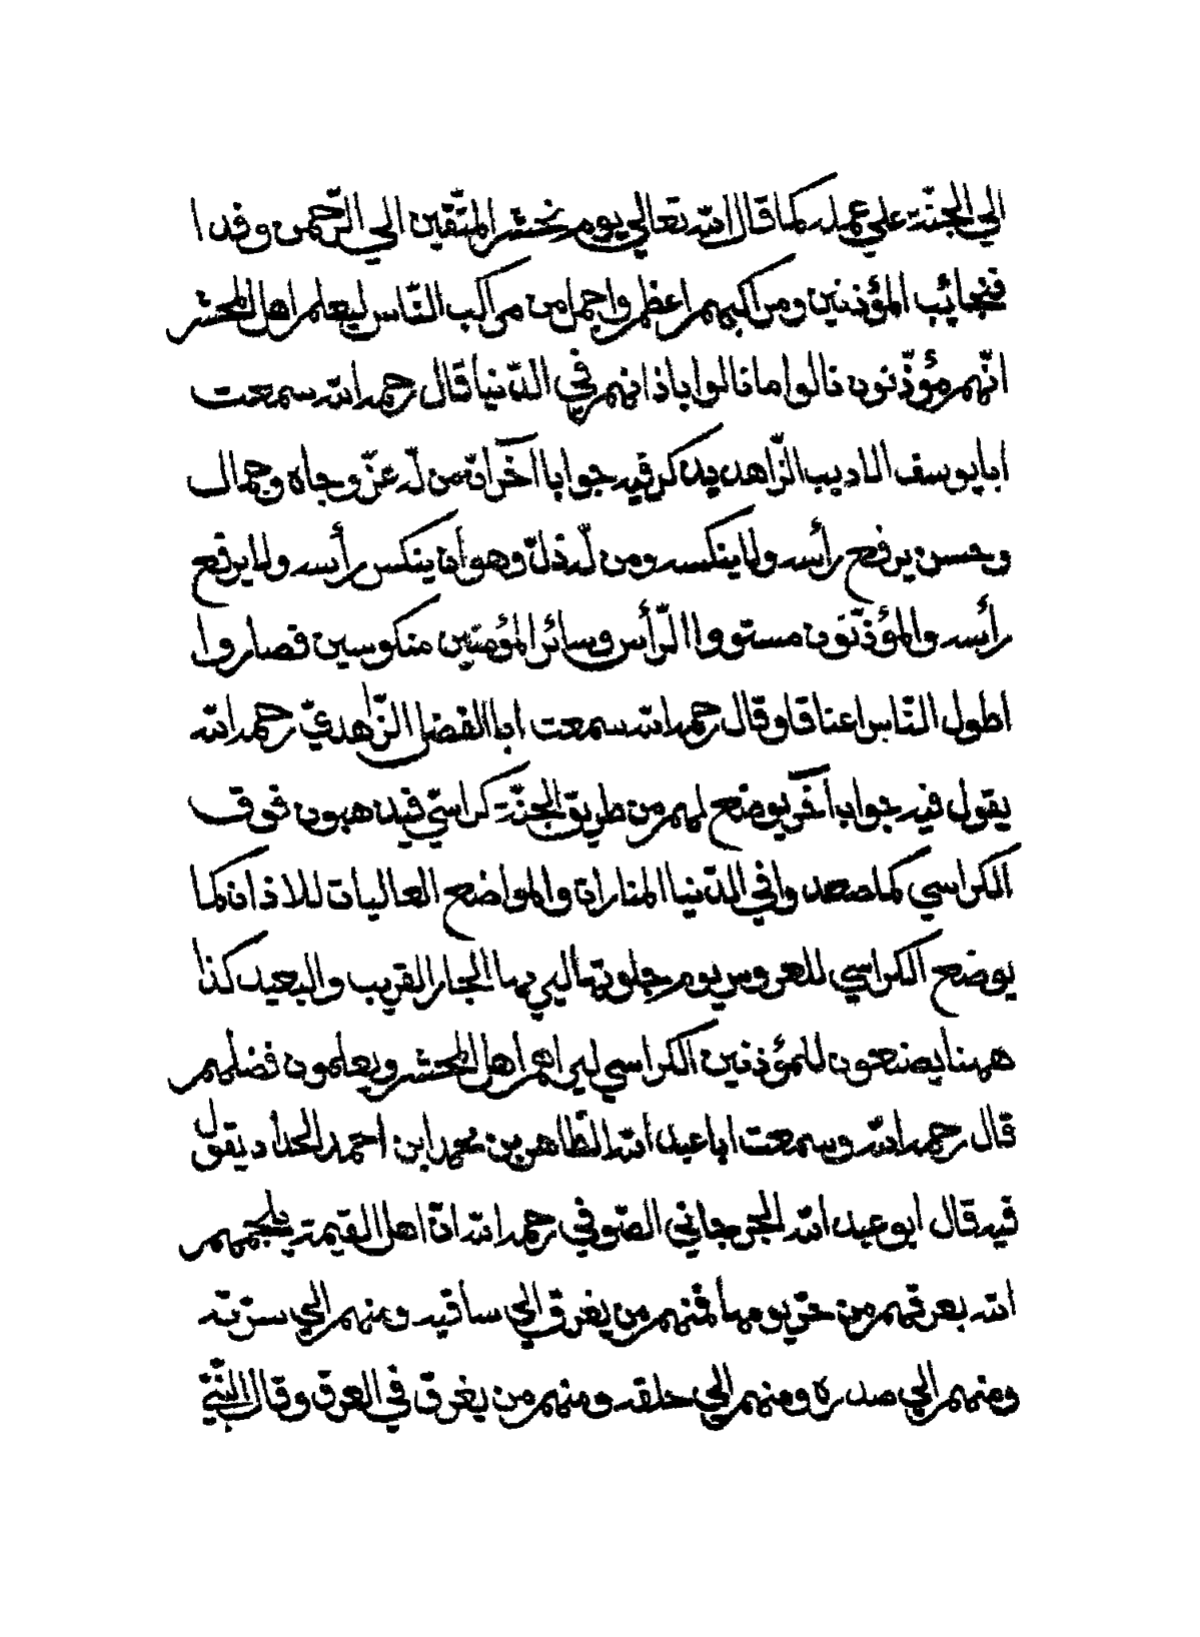 الي الجنّة علي عمله كما قال الله تعالي يوم نحشر المتّقين الي الرّحمن وفدا
فنجائب المؤذنين ومراكبهم اعظم واجمل من مراكب النّاس ليعلم اهل المحشر
انّهم مؤذّنون نالوا ما نالوا باذانهم في الدّنيا قال رحمه الله سمعت
ابا يوسف الاديب الزّاهد يذكر فيه جوابا آخر انّ من له عزّ وجاه وجمال
وحسن يرفع رأسه ولا ينكسه ومن له ذلّ وهوان ينكس رأسه ولا يرفع
رأسه والمؤذّنون مستووا الرّأس وسائر المؤمنين منكوسين فصاروا
اطول النّاس اعناقا وقال رحمه الله سمعت ابا الفضل الزّاهدي رحمه الله
يقول فيه جواب آخر يوضع لهم من طريق الجنّة كراسّي فيذهبون فوق
الكراسي كما صعدوا في الدّنيا المنارات والمواضع العاليات للاذان كما
يوضع الكراسي للعروس يوم جلوتها ليري بها الجار القريب والبعيد كذا
ههنا يصنعون للمؤذنين الكراسي ليراهم اهل المحشر ويعلمون فضلهم
قال رحمه الله وسمعت ابا عبد الله الطّاهر بن محمد ابن احمد الحداد يقول
فيه قال ابو عبد الله الجرجاني الصّوفي رحمه الله انّ اهل القيمة يلجمهم
الله بعرقهم من حرّ يومها فمنهم من يغرق الي ساقيه ومنهم الي سرّته
ومنهم الي صدره ومنهم الي حلقه ومنهم من يغرق في العرق وقال النّبيّ